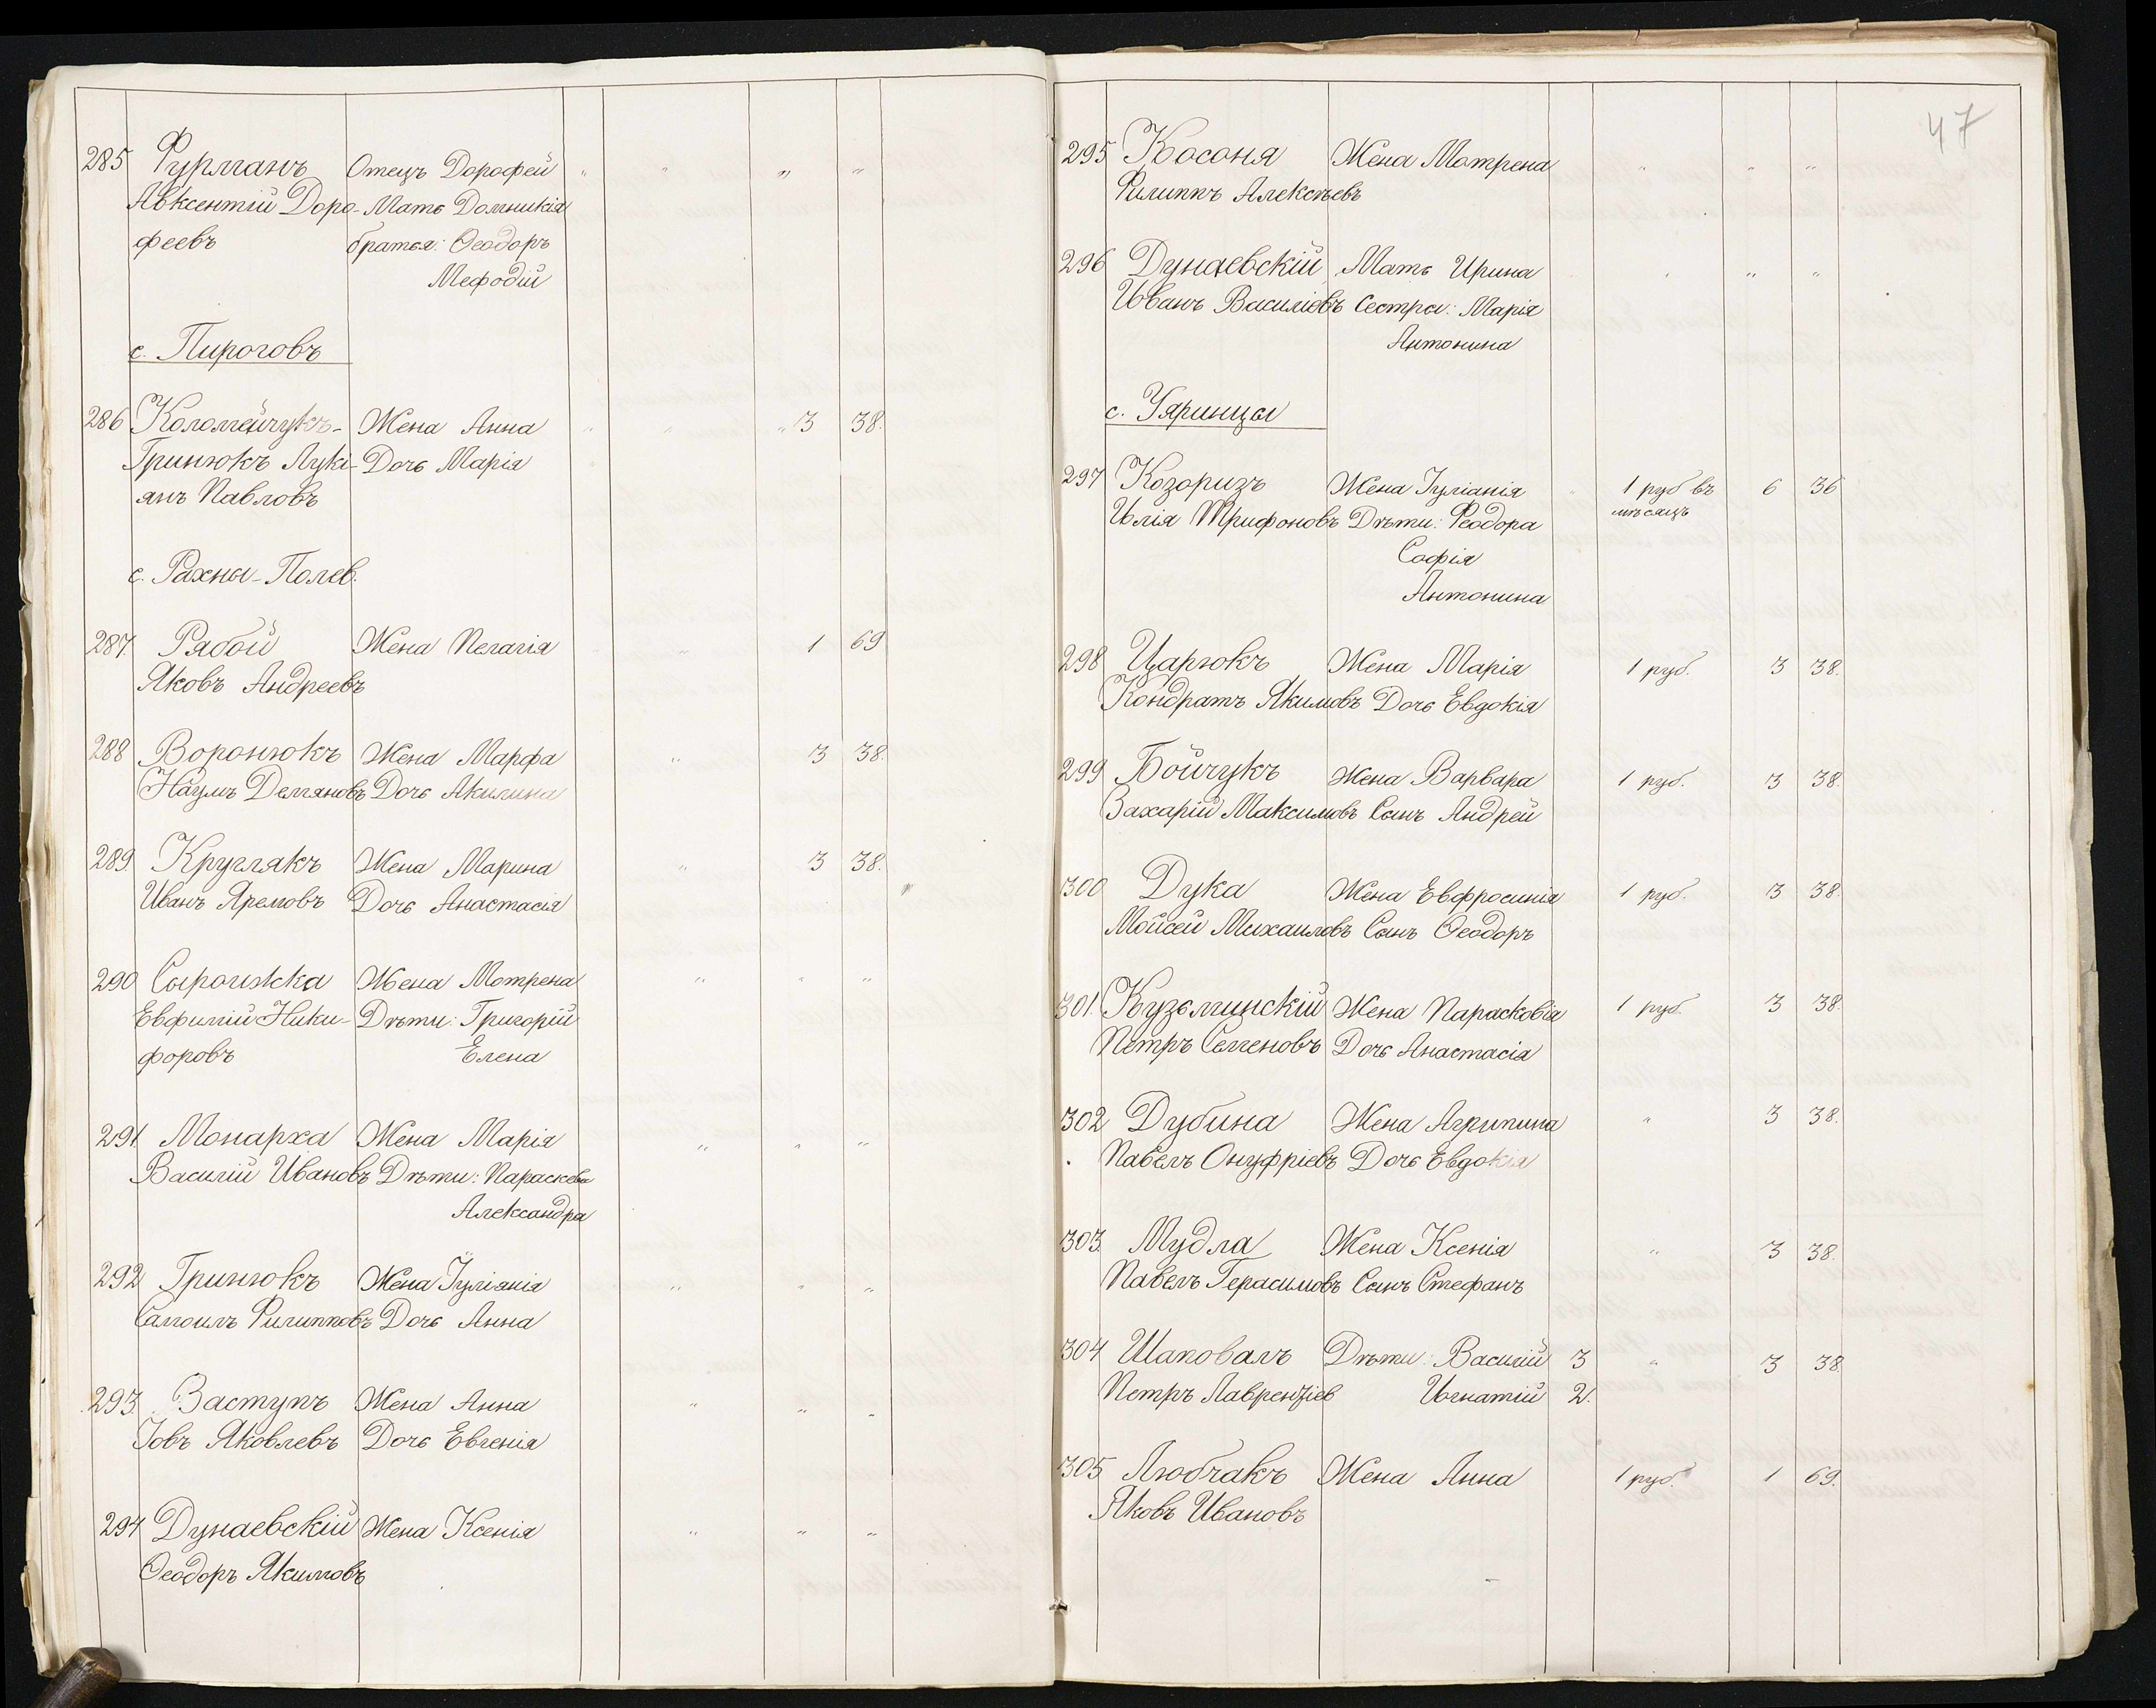 285 Фурманъ Отецъ Дорофей " " " "
Авксентій Доро- Мать Домникія
феевъ братья: Ѳеодоръ
Мефодій
с. Пироговъ
286 Коломейчукъ- Жена Анна " " " 3 38.
Гринюкъ Лукі- Дочь Марія
анъ Павловъ
с. Рахны-Полев.
287. Рябой Жена Пелагія " 1 69
Яковъ Андреевъ
288 Воронюкъ Жена Марфа " 3 38.
Наумъ Демяновъ Дочь Акилина
289. Круглякъ Жена Марина " 3 38.
Иванъ Яремовъ Дочь Анастасія
290 Сыроижка Жена Мотрена " " "
Евфимій Ники- Дѣти: Григорій
форовъ Елена
291 Монарха Жена Марія " " "
Василій Ивановъ Дѣти: Параскева
Александра
292 Гринюкъ Жена Іуліанія " " "
Самоилъ Филипповъ Дочь Анна
293. Заступъ Жена Анна " " "
Іовъ Яковлевъ Дочь Евгенія
294 Дунаевскій Жена Ксенія " " "
Ѳеодоръ Якимовъ
47
295 Косоня Жена Мотрена " " "
Филиппъ Алексѣевъ
296 Дунаевскій Мать Ирина " " "
Иванъ Василіевъ Сестры: Марія
Антонина
с. Уяринцы
297 Козоризъ Жена Іуліанія " 1 руб въ 6 36
Илія Трифоновъ Дѣти: Феодора мѣсяцъ
Софія
Антонина
298 Царюкъ Жена Марія 1 руб. 3 38.
Кондратъ Якимовъ Дочь Евдокія
299 Бойчукъ Жена Варвара 1 руб. 3 38.
Захарій Максимовъ Сынъ Андрей
300 Дука Жена Евфросинія 1 руб. 3 38.
Мойсей Михаиловъ Сынъ Ѳеодоръ
301. Кузьминскій Жена Парасковія 1 руб. 3 38.
Петръ Семеновъ Дочь Анастасія
302 Дубина Жена Агрипина " 3 38.
Павелъ Онуфріевъ Дочь Евдокія
303. Мудла Жена Ксенія " 3 38.
Павелъ Герасимовъ Сынъ Стефанъ
304 Шаповалъ Дѣти: Василій 3 " 3 38
Петръ Лаврентіев Игнатій 2.
305. Любчакъ Жена Анна 1 руб. 1 69.
Яковъ Ивановъ